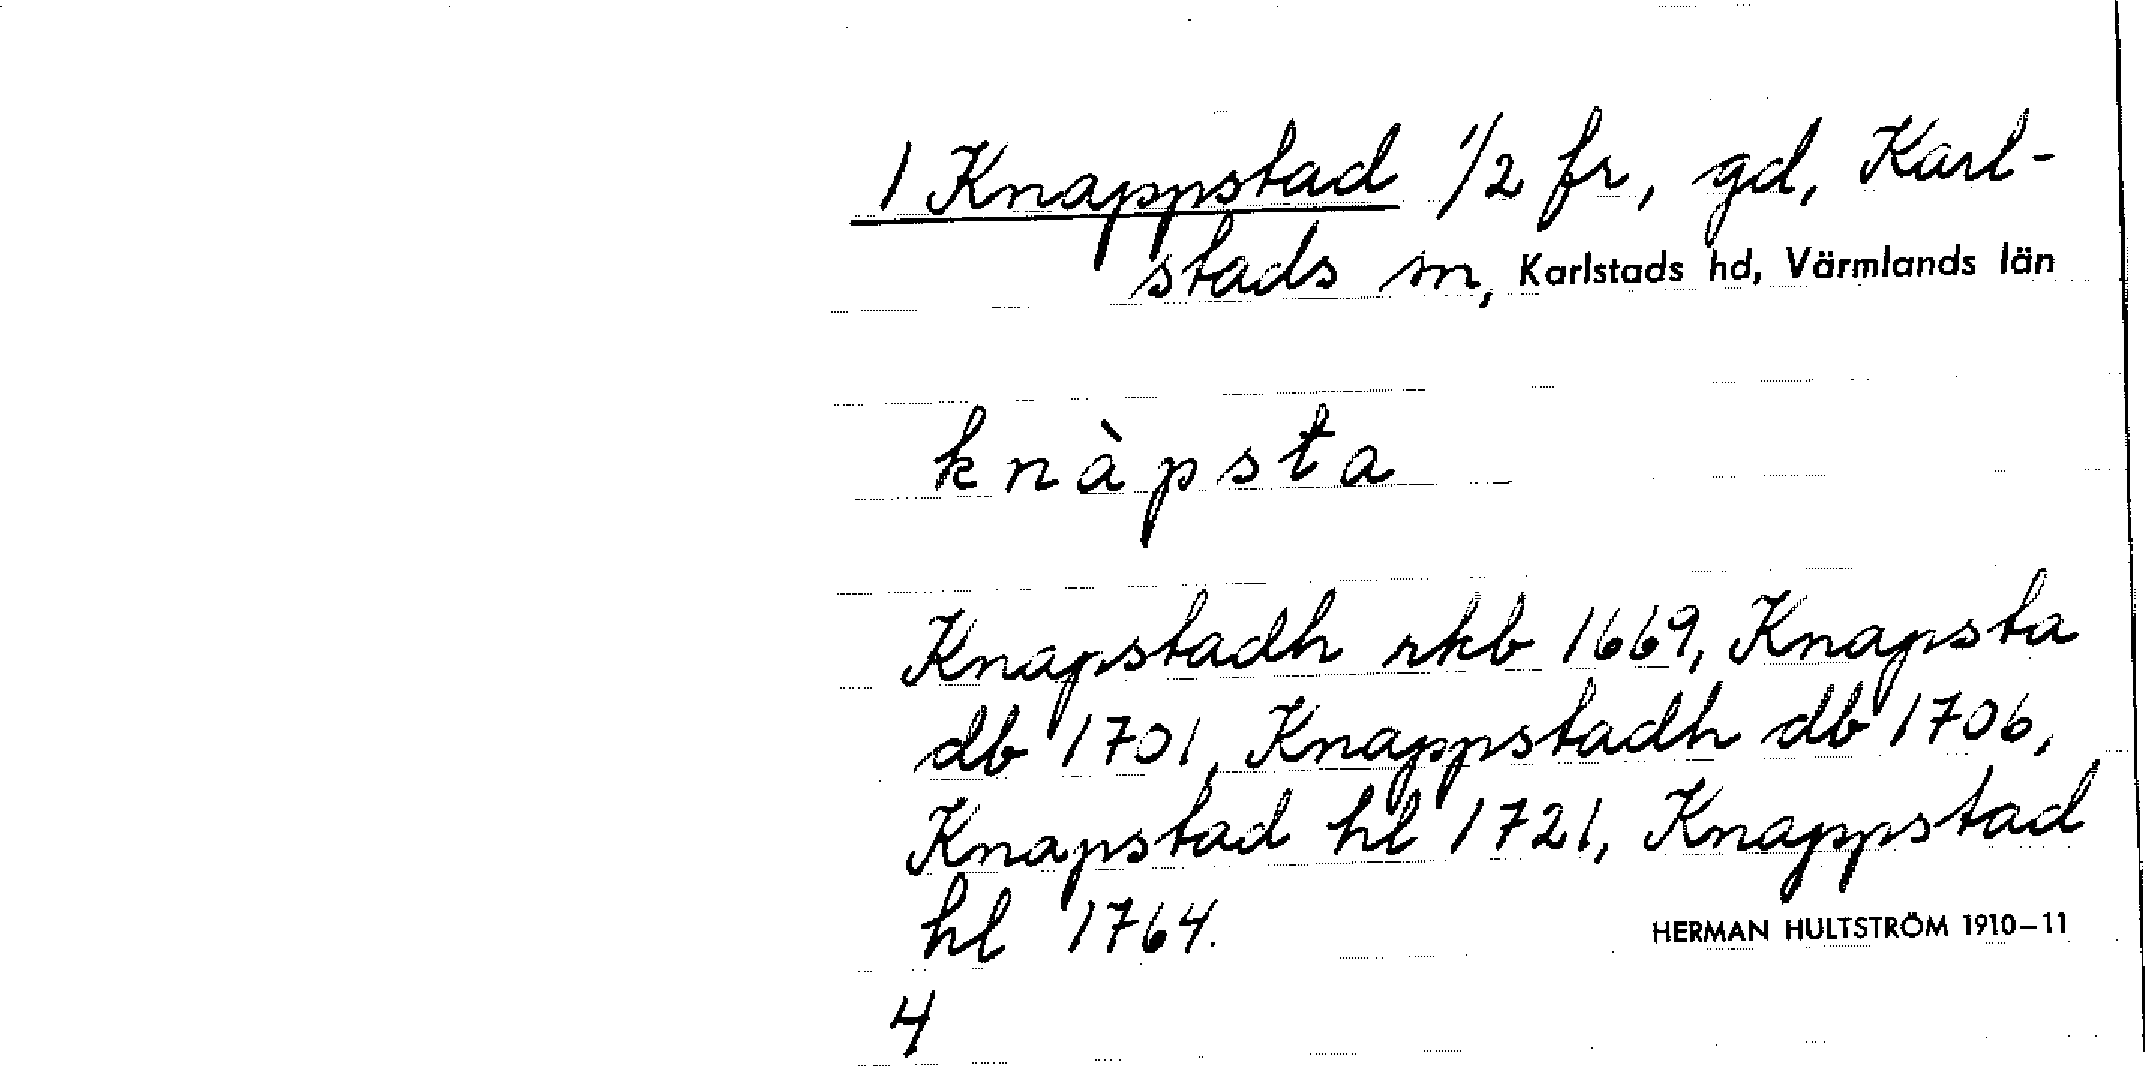 1 Knappstad 1/2 fr, gd, Karl-
stads sn, Karlstads hd, Värmlands län
knàpsta
Knapstadh rkb 1669, Knapsta
db 1701, Knappstadh db 1706,
Knapstad hl 1721, Knappstad
hl 1764.
HERMAN HULTSTRÖM 1910–11
4